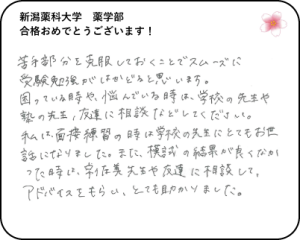 新潟薬科大学　薬学部
合格おめでとうございます！
苦手部分を克服しておくことでスムーズに
受験勉強がはかどると思います。
困っている時や、悩んでいる時は、学校の先生や
塾の先生、友達に相談などしてください。
私は、面接練習の時は学校の先生にとてもお世
話になりました。また、模試の結果が良くなか
った時は、宇佐美先生や友達に相談して、
アドバイスをもらい、とても助かりました。